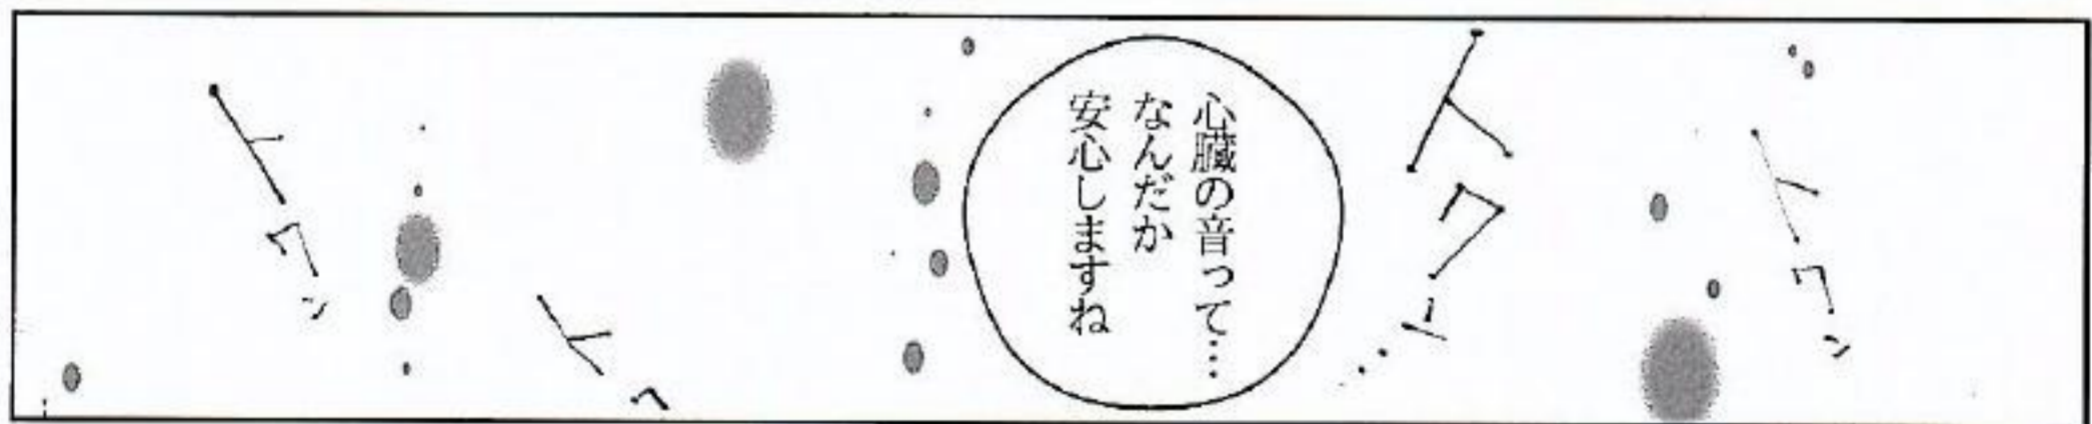 トクン
トクン…
心臓の音って…
なんだか
安心しますね
トクン